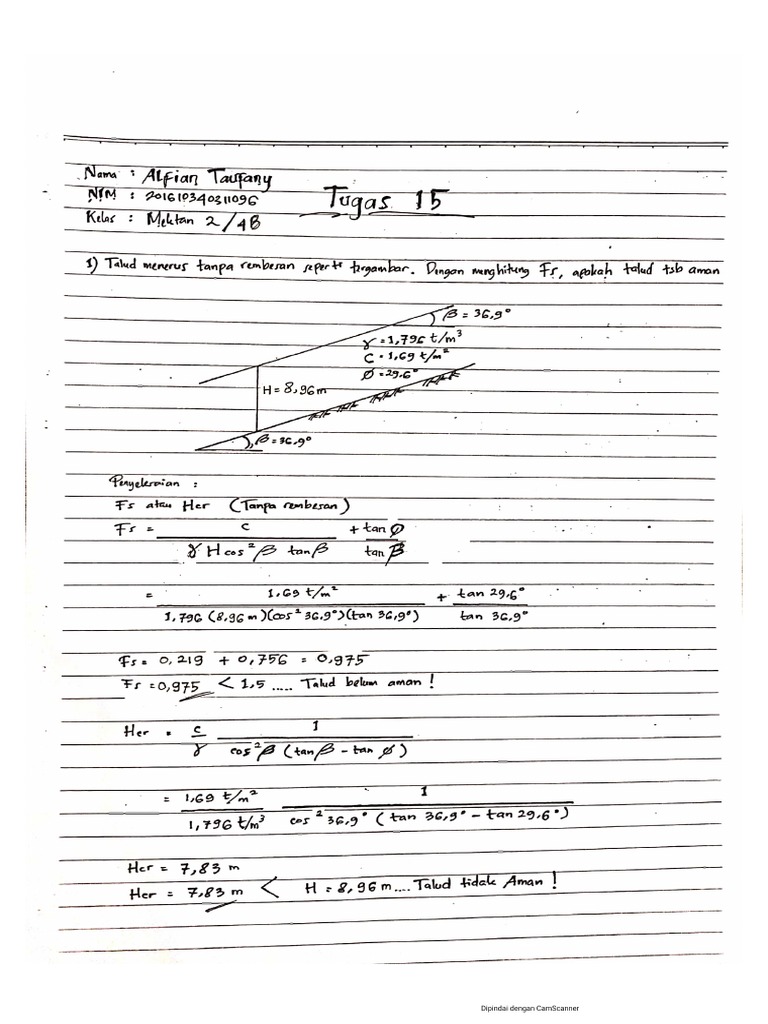 Nama : Alfian Taufany
NIM : 201610340311096
Tugas 15
Kelas : Mektan 2/4B
1) Talud menerus tanpa rembesan seperti tergambar. Dengan menghitung Fs, apakah talud tsb aman
β = 36,9°
γ = 1,796 t/m³
C = 1,69 t/m²
Ø = 29.6°
H = 8,96 m
β = 36,9°
Penyelesaian :
Fs atau Hcr (Tanpa rembesan)
Fs = c / γ H cos² β tan β + tan Ø / tan β
= 1.69 t/m² / 1,796 (8,96 m)(cos² 36,9°)(tan 36,9°) + tan 29,6° / tan 36,9°
Fs = 0,219 + 0,756 = 0,975
Fs = 0,975 < 1,5 ..... Talud belum aman !
Hcr = c / γ 1 / cos² β (tan β - tan Ø)
= 1,69 t/m² / 1,796 t/m³ 1 / cos² 36,9° (tan 36,9° - tan 29.6°)
Hcr = 7,83 m
Hcr = 7,83 m < H = 8,96 m .... Talud tidak Aman !
Dipindai dengan CamScanner